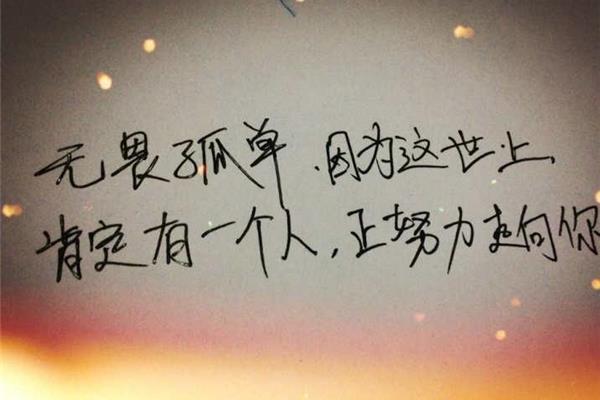 无畏孤单.因为这世上,
肯定有一个人,正努力走向你